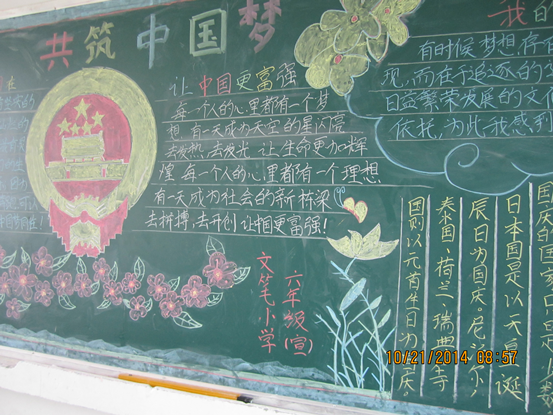 共筑中国梦
让中国更富强
每一个人的心里都有一个梦
想,有一天成为天空的星闪亮
去发热,去发光,让生命更加辉
煌,每一个人的心里都有一个理想
有一天成为社会的新桥梁
去拼搏,去开创,让中国更富强!
文笔小学
六年级(宣)
我的
有时候梦想,存
现,而在于追逐的
日益繁荣发展的文
依托,为此我感到
日本国是以天皇诞
辰日为国庆。尼泊尔,
泰国、荷兰、瑞典等
国则以元首生日为国庆。
10/21/2014 08:57